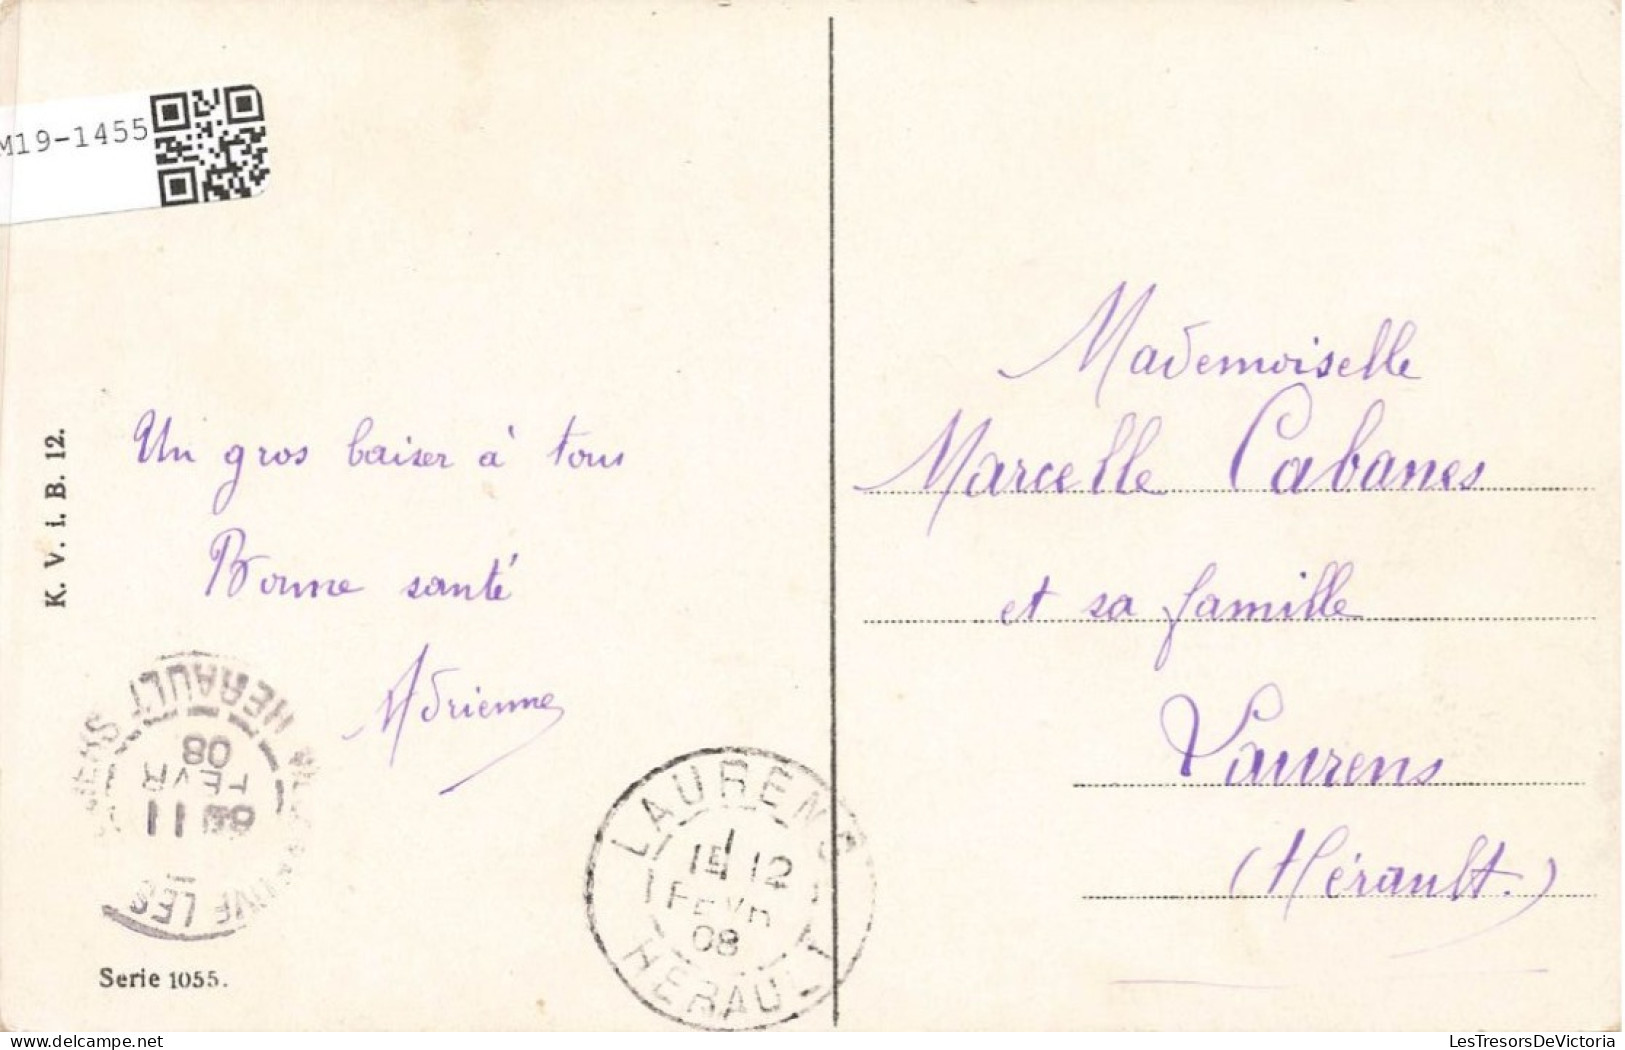 M19-1455
K. V. i. B. 12.
Un gros baiser à tous
Bonne santé
Adrienne
HERAULT
08
FEVR
11
Serie 1055.
LAURENS
1E 12
FEVR
08
HERAULT
Mademoiselle
Marcelle Cabanes
et sa famille
Laurens
(Hérault.)
LesTresorsDeVictoria.com